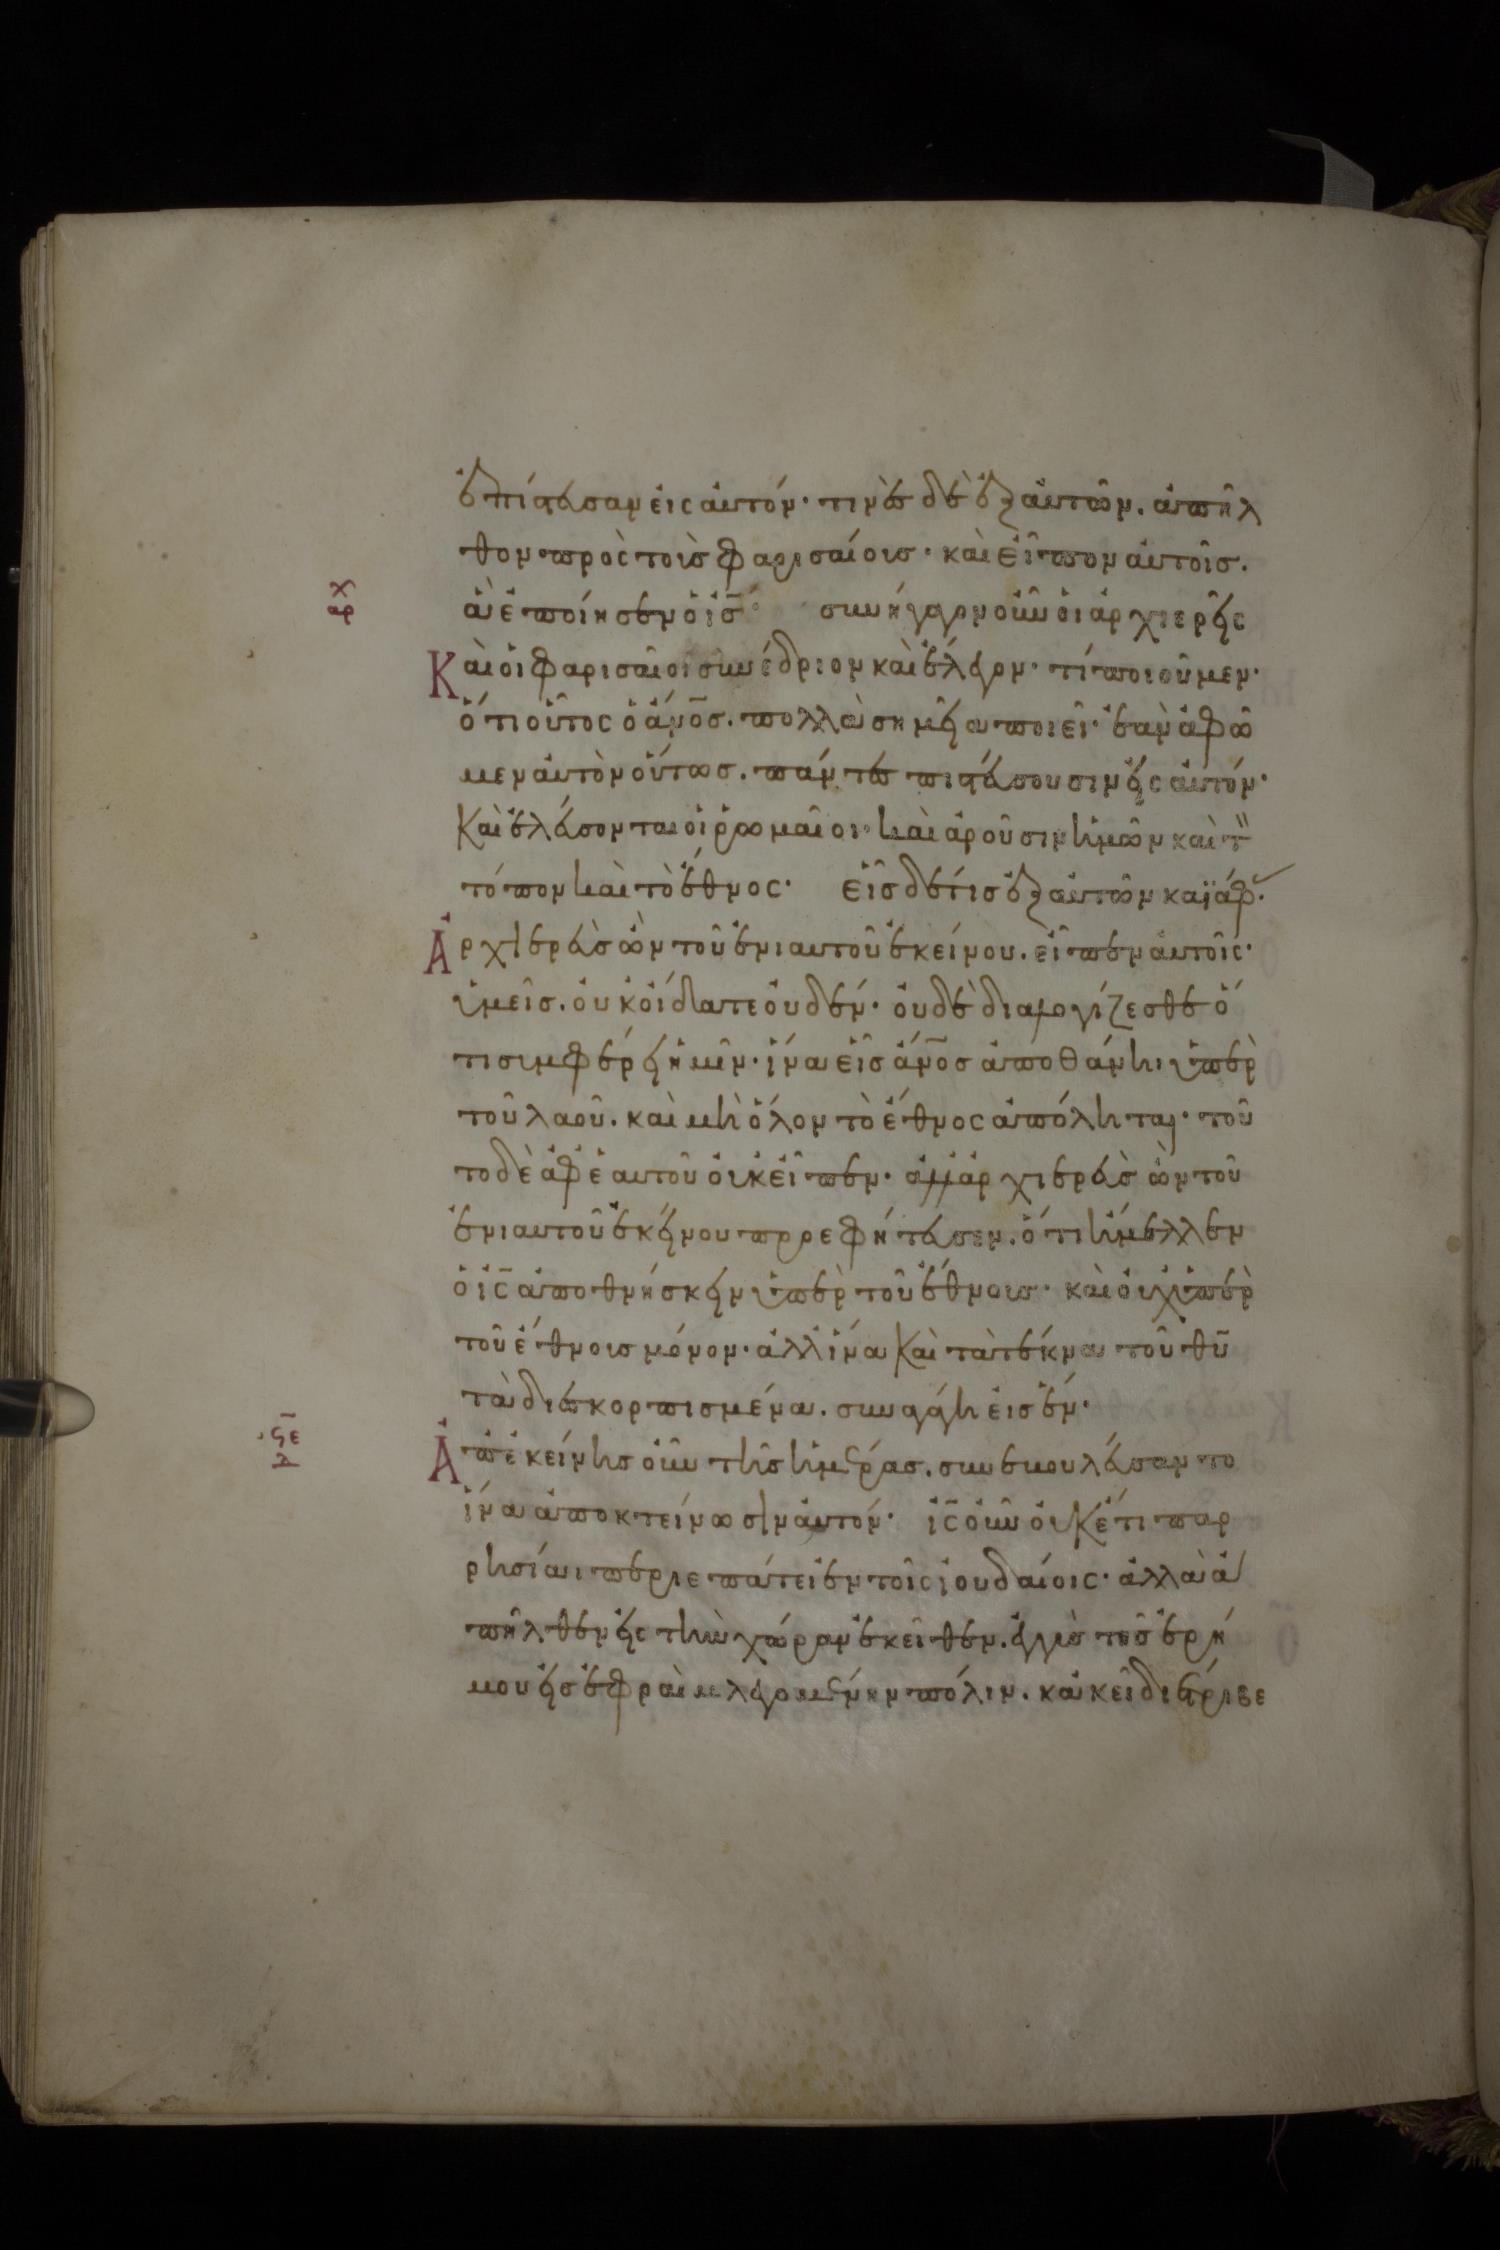 ἐπίστευσαν εἰς αὐτόν· τινὲς δὲ ἐξ αὐτῶν. ἀπῆλ
θον πρὸς τοὺς φαρισαίους· καὶ εἶπον αὐτοῖς.
αρχ
ἃ ἐποίησεν ὁ ἰς̅· συνήγαγον οὖν οἱ ἀρχιερεῖς
Καὶ οἱ φαρισαῖοι συνέδριον καὶ ἔλεγον· τί ποιοῦμεν·
ὅτι οὗτος ὁ ἄνο̅ς. πολλὰ σημεῖα ποιεῖ· ἐὰν ἀφῶ
μεν αὐτὸν οὕτως. πάντες πιστεύσουσιν εἰς αὐτόν·
Καὶ ἐλεύσονται οἱ ῥωμαῖοι· καὶ ἀροῦσιν ἡμῶν καὶ τ̏
τόπον καὶ τὸ ἔθνος· εἷς δέ τις ἐξ αὐτῶν καϊάφ·
Ἀρχιερεὺς ὢν τοῦ ἐνιαυτοῦ ἐκείνου. εἶπεν αὐτοῖς·
ὑμεῖς. οὐκ οἴδατε οὐδέν· οὐδὲ διαλογίζεσθε ὅ
τι συμφέρει ἡμῖν· ἵνα εἷς ἄνο̅ς ἀποθάνηι ὑπὲρ
τοῦ λαοῦ. καὶ μὴ ὅλον τὸ ἔθνος ἀπόληται· τοῦ
το δὲ ἀφ ἑαυτοῦ οὐκ εἶπεν· ἀλλ ἀρχιερεὺς ὢν τοῦ
ἐνιαυτοῦ ἐκείνου προεφήτευσεν. ὅτι ἤμελλεν
ὁ ἰς̅ ἀποθνήσκειν ὑπὲρ τοῦ ἔθνους· καὶ οὐχ ὑπὲρ
τοῦ ἔθνους μόνον· ἀλλ ἵνα καὶ τὰ τέκνα τοῦ θυ̅
τὰ διεσκορπισμένα. συναγάγη εἰς ἕν·
Ἀπ ἐκείνης οὖν τῆς ἡμέρας. συνεβουλεύσαντο
ἵνα ἀποκτείνωσιν αὐτόν· ἰς̅ οὖν οὐκέτι παρ
ρησίαι περιεπάτει ἐν τοῖς ἰουδαίοις· ἀλλὰ ἀ
πῆλθεν εἰς τὴν χώραν ἐκεῖθεν. ἐγγὺς τῆς ἐρή
μου εἰς ἐφραὶμ λεγομένην πόλιν. κἀκεῖ διέτριβε